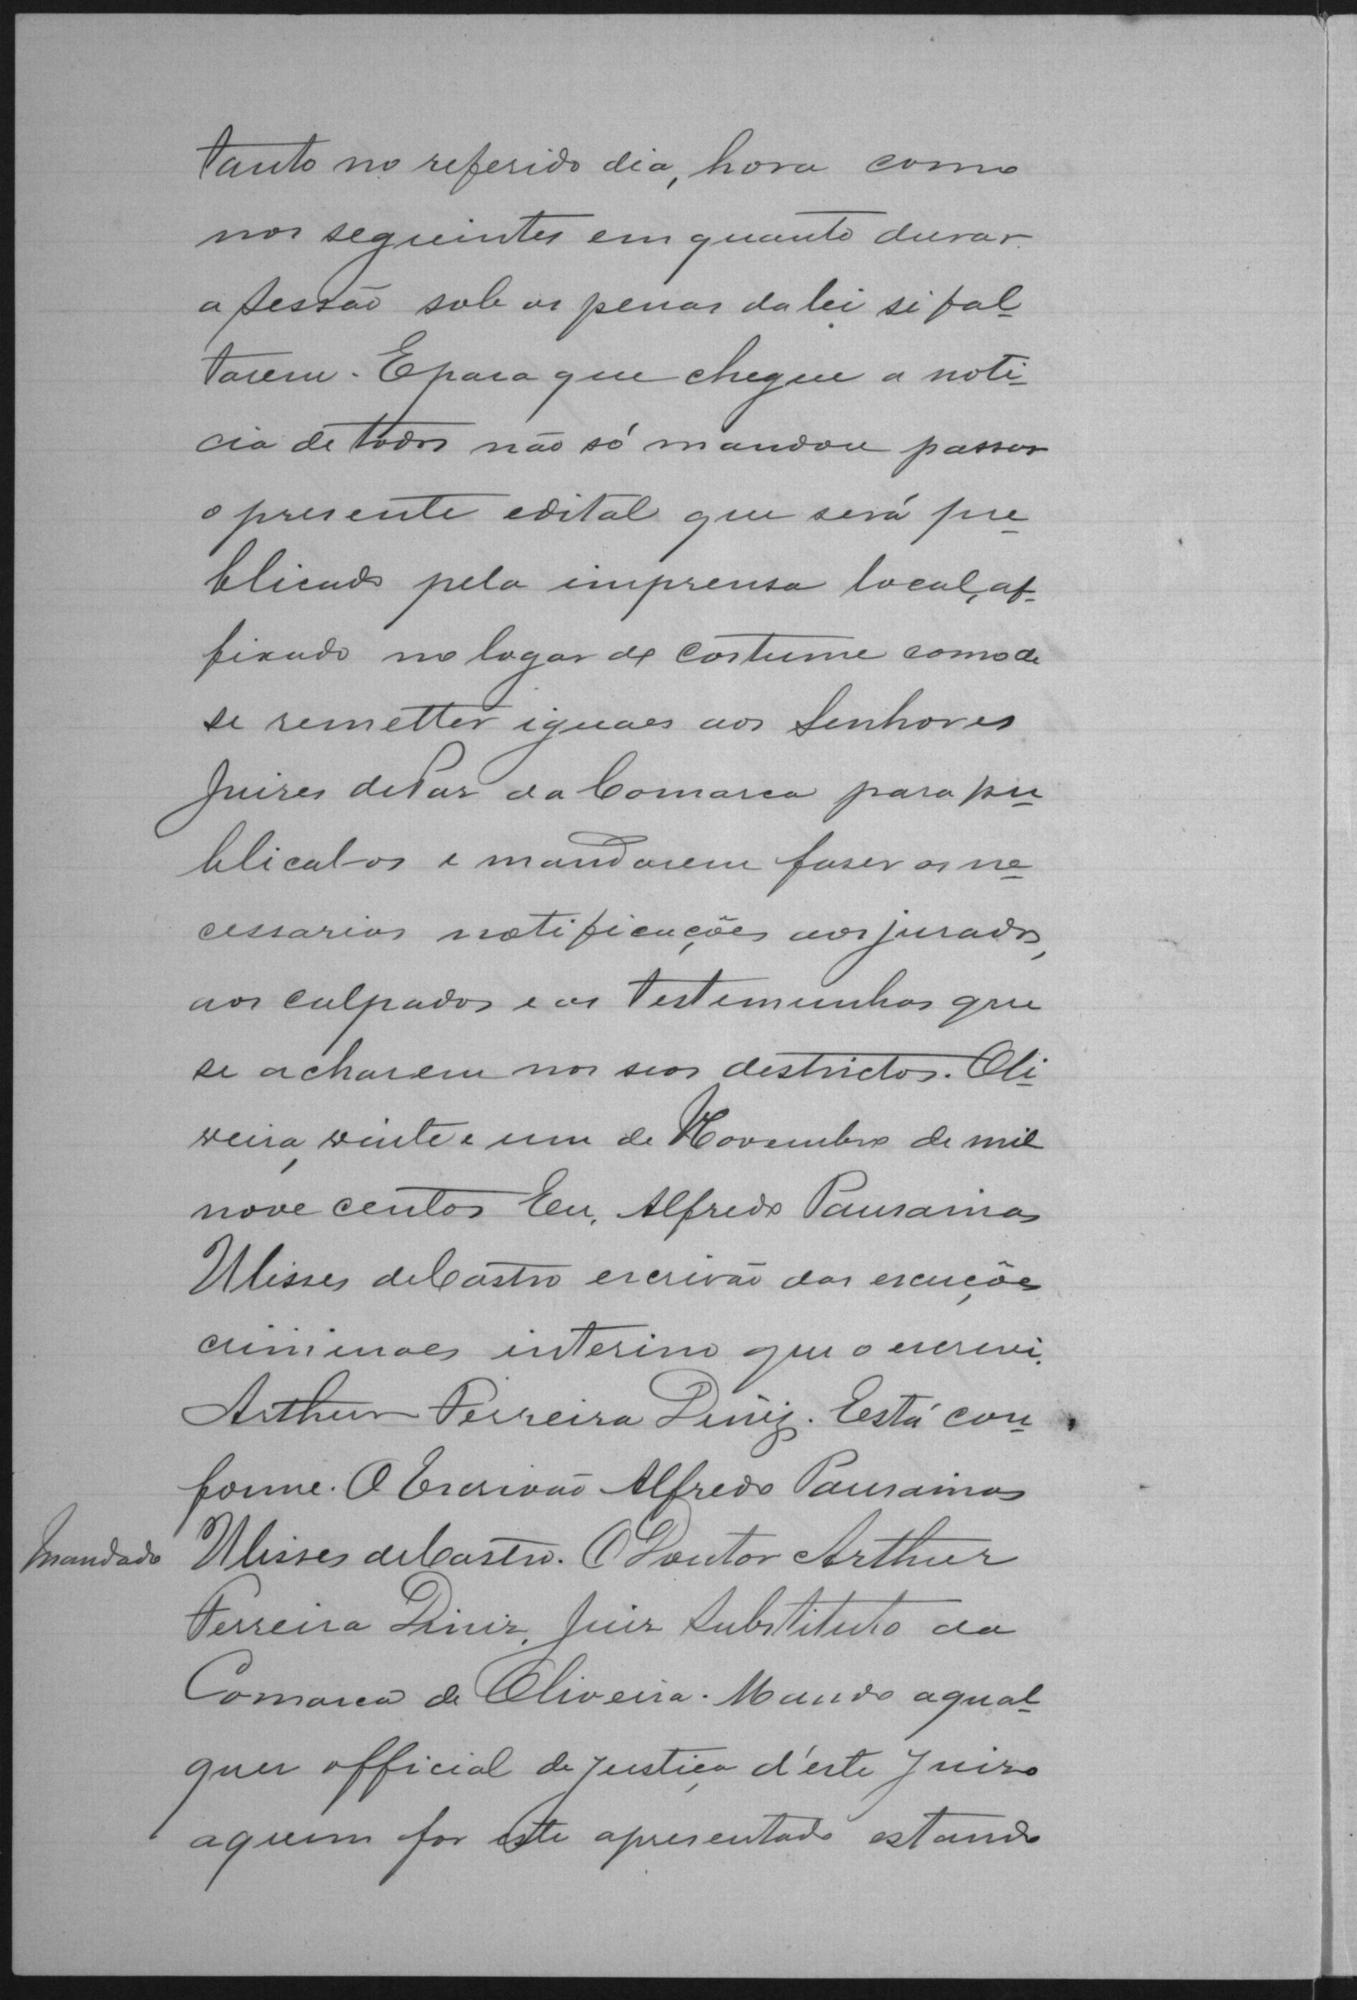 tanto no referido dia, hora como
nos seguintes em quanto durar
a sessão sob as penas da lei si fal-
tarem. E para que chegue a noti-
cia de todos não só mandou passar
o presente edital que será pu-
blicado pela imprensa local, af-
fixado no logar do costume como de
se remetter iguaes aos Senhores
Juizes de Paz da Comarca para pu-
blical-os e mandarem faser as ne-
cessarias notificações aos jurados,
aos culpados e as testemunhas que
se acharem nos seos destrictos. Oli-
veira, vinte e um de Novembro de mil
nove centos Eu, Alfredo Pausanias
Ulisses de Castro escrivão das escuções
criminaes interino que o escrevi.
Arthur Ferreira Diniz. Está con-
forme. O Escrivão Alfredo Pausanias
Mandado Ulisses de Castro. O Doutor Arthur
Ferreira Diniz, Juiz Substituto da
Comarca de Oliveira. Mando a qual-
quer official de justiça d'este Juizo
a quem for este apresentado estando